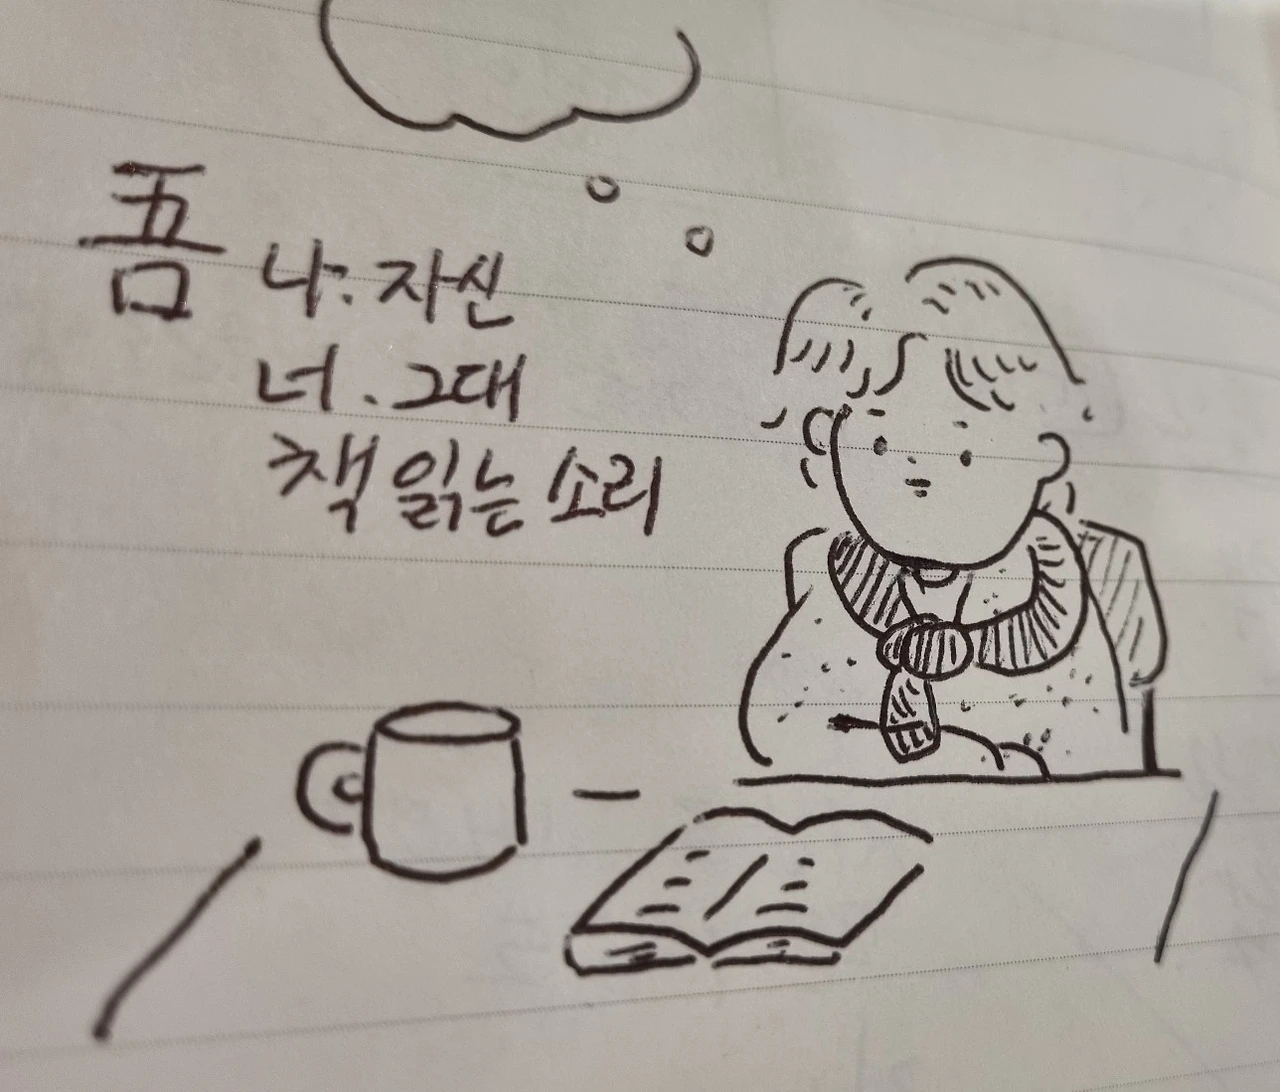 吾
나: 자신
너. 그대
책 읽는 소리